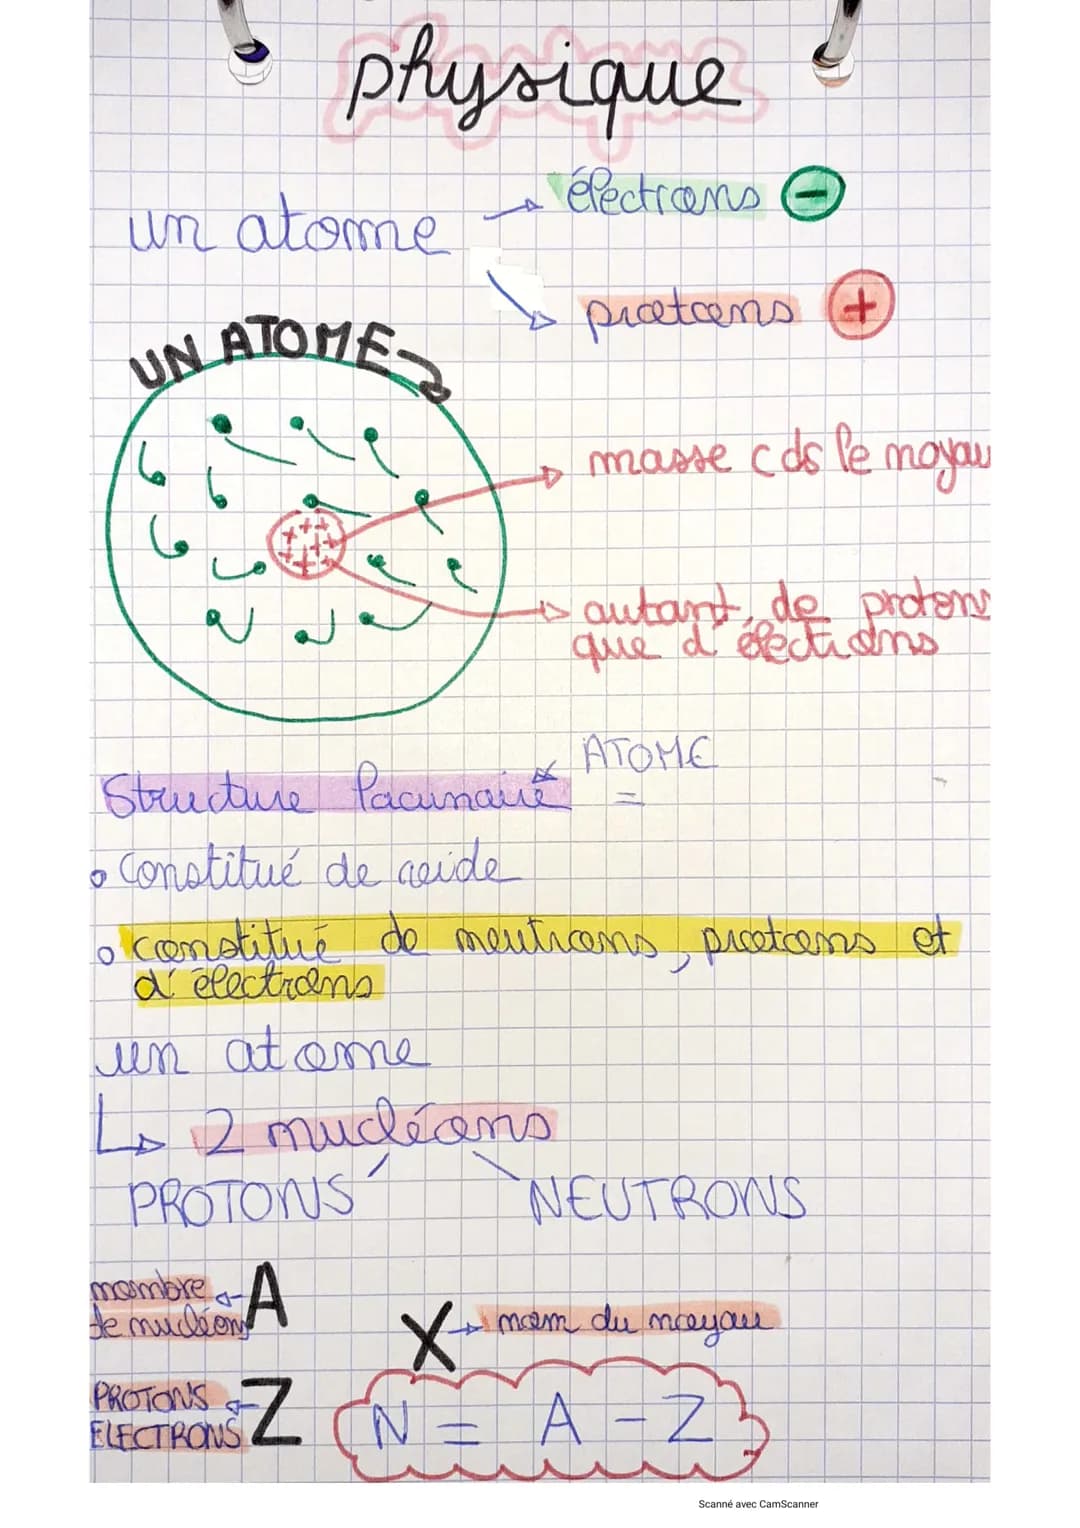 physique
un atome
électrons −
protons +
UN ATOME
masse c ds le noyau
autant de protons
que d'électrons
ATOME
=
Structure lacunaire
Constitué de vide
constitué de neutrons, protons et
d'électrons
un atome
2 nucléons
PROTONS NEUTRONS
nombre
de nucléons
A
X
nom du noyau
PROTONS
ELECTRONS
Z
N = A - Z
Scanné avec CamScanner